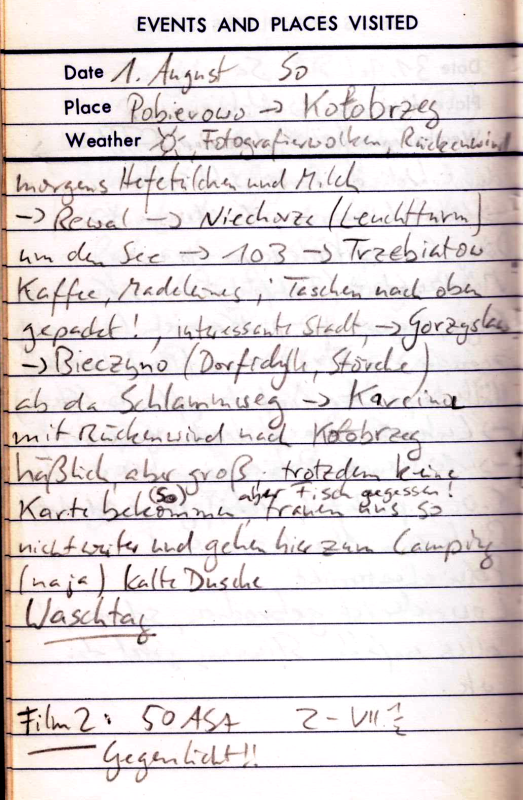 EVENTS AND PLACES VISITED
Date 1. August So
Place Pobierowo → Kołobrzeg
Weather ☼, Fotografierwolken, Rückenwind
morgens Hefeteilchen und Milch
→ Rewal → Niechorze (Leuchtturm)
um den See → 103 → Trzebiatow
Kaffee, Madeleines, Taschen nach oben
gepackt!, interessante Stadt, → Gorzysław
→ Bieczyno (Dorfidylle, Störche)
ab da Schlammweg → Karcino
mit Rückenwind nach Kołobrzeg
häßlich, aber groß. trotzdem keine
(So) aber Fisch gegessen!
Karte bekommen, trauen uns so
nicht weiter und gehen hier zum Camping
(naja) kalte Dusche
Waschtag
Film 2: 50 ASA 2-VII ½
Gegenlicht!!